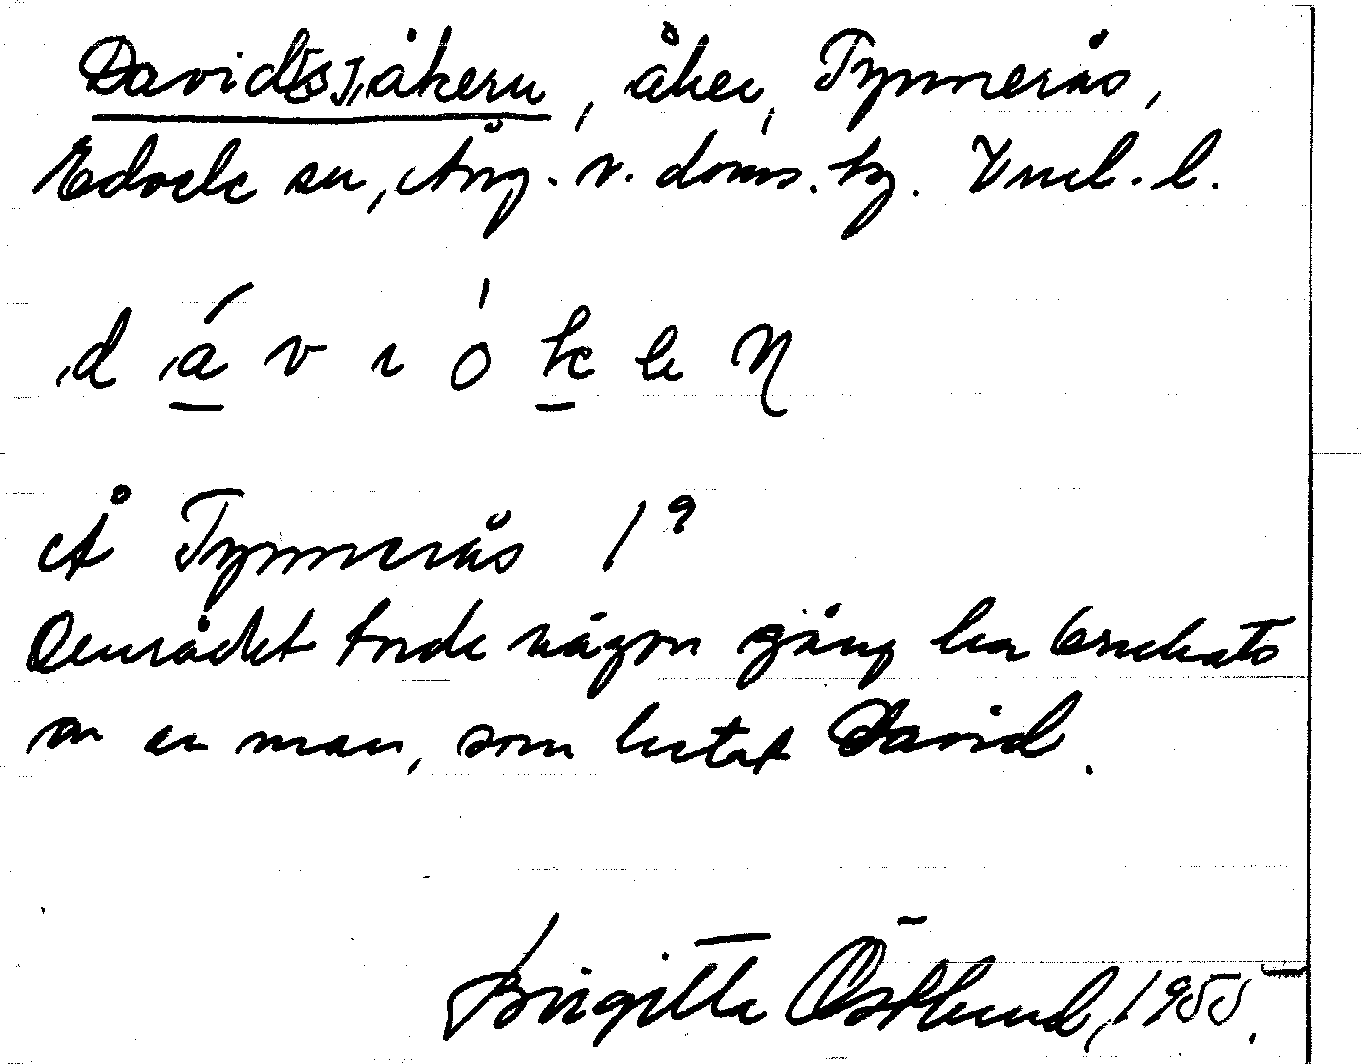 David[s]åkern, åker, Tynnerås,
Edvele sn, Ång. v. doms. tg. Vnrl. l.
d a v ı ó k e ɳ
Å Tynnerås 1⁹
Området torde någon gång ha brukats
av en man, som hetat David.
Birgitta Östlund, 1955.